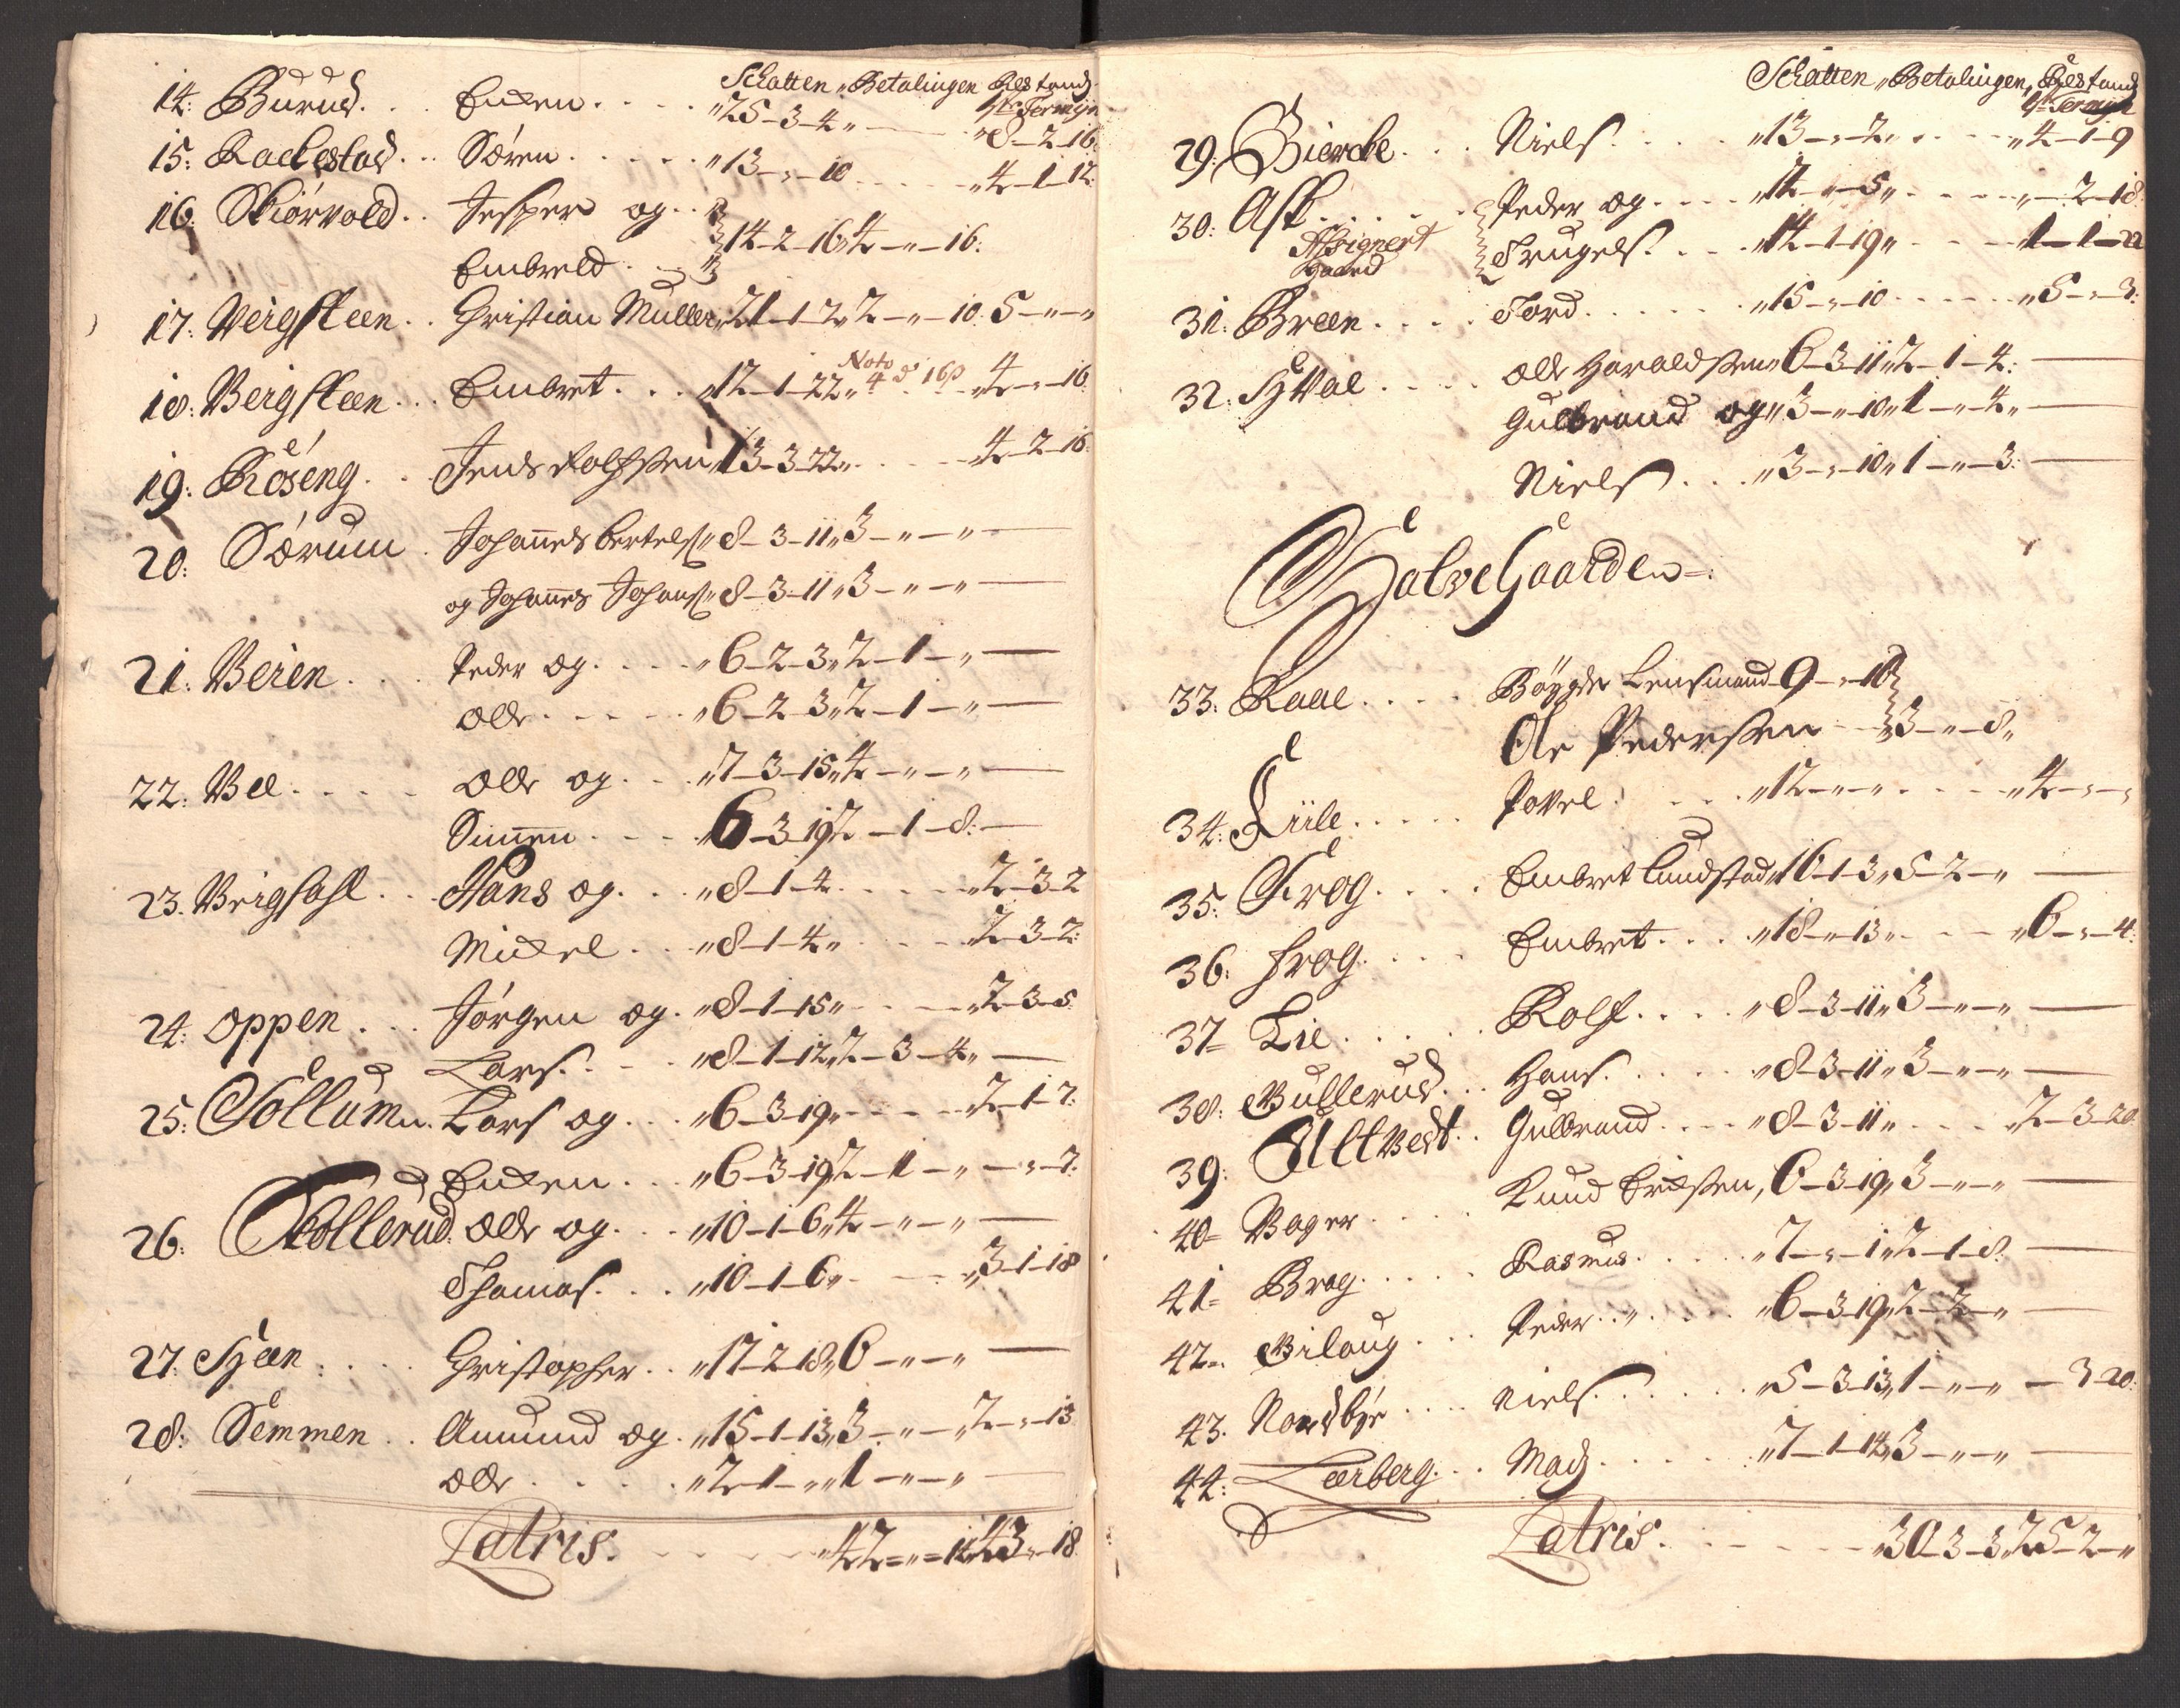 Schatten „ Betalingen Restands
1ste Termijn
14: Burud. . Encken . . . . „ 25-3-4 „ — „ 8-2-16:
15: Rachestad . . Søren . . . . . „ 13-„-10 . . . . „ 4-1-12:
16: Skiörvold . . Jesper og . .
Embreld . . 14-2-16 „ 4-„-16:
17: Vergsteen . . Christian Muller „ 21-1-2 „ 2-„-10. 5-„-„
Noto 4 d 16 ß
18: Bergsteen . . . Embret . . . „ 12-1-22 „ . . . „ 4-„-16
19: Röseng . . Jens Rolfsen „ 13-3-22 „ . . . . „ 4-2-16
20: Sørum . Johannes Bertels: „ 8-3-11 „ 3-„-„ —
og Johannes Johans: „ 8-3-11 „ 3-„-„ —
21: Beien . . . . Peder og . . . . „ 6-2-3 „ 2-1-„ —
Olle . . . . . „ 6-2-3 „ 2-1-„ —
22: Vee . . . . . Olle og . . . „ 7-3-15 „ 4-„-„ —
Simen . . . . „ 6-3-19 „ 2-1-8: —
23. Bergsahl . . . Hans og . . . „ 8-1-4 . . . . . „ 2-3-2
Mickel . . . „ 8-1-4 „ . . . . 2-3-2:
24: Oppen . . . Jörgen og . „ 8-1-15 „ . . . . „ 2-3-5
Lars . . . . „ 8-1-12 „ 2-3-4 „ —
25: Sollum . Lars og . . . „ 6-3-19 „ . . . . 2-1-7:
Encken . . . „ 6-3-19 „ 2-1-„ — „-7.
26: Skollerud . Olle og . . . „ 10-1-6 „ 4-„-„ —
Thomas . . . „ 10-1-6 „ . . . „ 3-1-18
27: Hæen . . . . Christopher . . „ 17-2-18 „ 6-„-„ —
28: Semmen . . Amund og . „ 15-1-13 „ 3-„-„ 2-„-13
Olle . . . . . „ 2-1-„ „ 1-„-„ —
Latris . . . . . „ 42-„-14 „ 43-„-18
Schatten „ Betalingen „ Restands
1st Termijn
29: Biercke . . . Niels . . . . „ 13-„-2 „ . . . . „ 4-1-9
30: Ask . . . . . . Peder og . . . . „ 14-„-5 „ . . . . „-2-18
Assignert Gaard Trugels . . . „ 14-1-19 „ . . . . 1-1-22
31: Breen . . . . Tord . . . . . „ 15-„-10 . . . . . „ 5-„-3:
32: Hval . . . . Olle Haraldsen „ 6-3-11 „ 2-1-4: —
Gulbrand og „ 3-„-10 „ 1-„-4 „ —
Niels . . . „ 3-„-10 „ 1-„-3: —
Halve Gaarder:
33: Raae . . . . Böygde Lensmand 9-„-10
Ole Pedersen — 3-„-8 „
34: Liile . . . . . Povel . . . . „ 12-„-„ . . . . „ 4-„-„
35: Frog . . . . Embret Lundstad „ 16-1-3 „ 5-2-„ —
36: Frog . . . . Embret . . . „ 18-„-13 „ . . . „ 6-„-4:
37= Lie . . . . . Rolf . . . . „ 8-3-11 „ 3-„-„ —
38: Bullerud . . . Hans . . . . . „ 8-3-11 „ 3-„-„ —
39: Ultvedt . . Gulbrand . . . . „ 8-3-11 „ . . . . 2-3-20
40= Bager . . . . Knud Ericksen, 6-3-19 „ 3-„-„ —
41= Brag . . . . . Rasmus . . . . „ 7-„-1 „ 2-1-8: —
42= Bilaug . . . Peder . . „ . . „ 6-3-19 „ 2-2-„ —
43. Nordbye . . . . Niels . . . . . „ 5-3-13 „ 1-„-„ — 3-20:
44: Leerberg . . . Mads . . . . . „ 7-1-14 „ 3-„-„ —
Latris . . . . . . . „ 30-3-3 „ 25-2-„